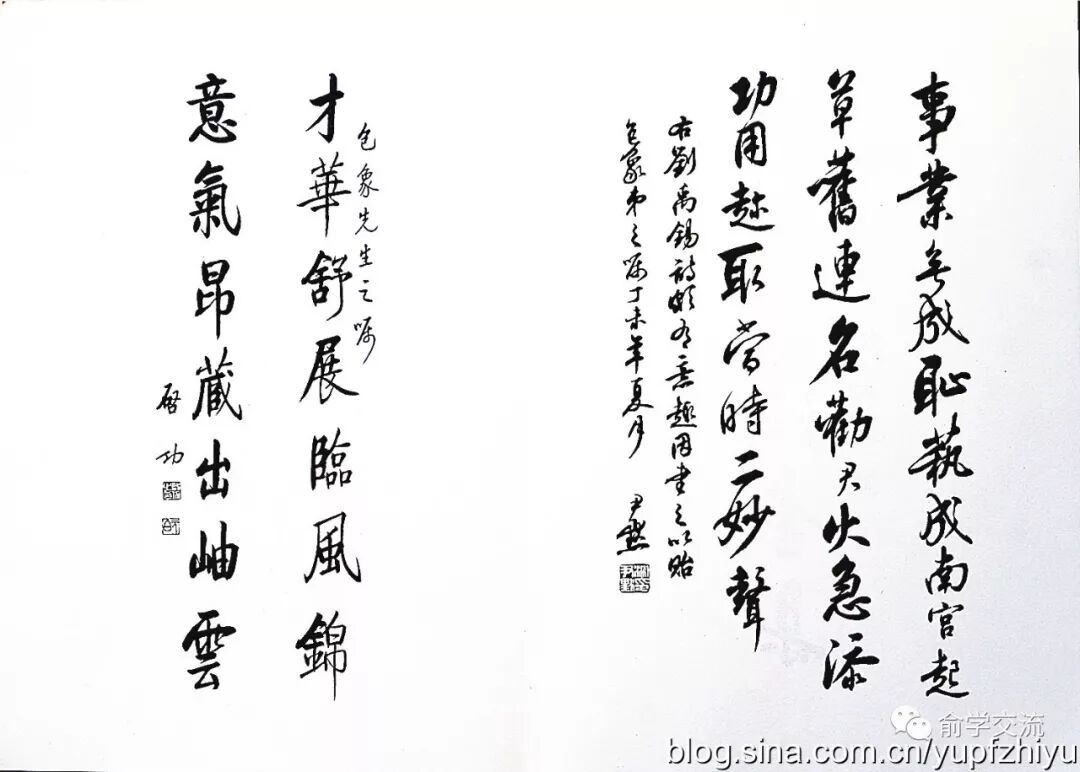 事業無成恥藝成南宮起
草舊連名勸君火急添
功用趁取當時二妙聲
右劉禹錫詩頗有意趣因書之以貽
包象弟之嘱丁未年夏月 尹默
包象先生之嘱
才華舒展臨風錦
意氣昂藏出岫雲
啓功
俞学交流
blog.sina.com.cn/yupfzhiyu